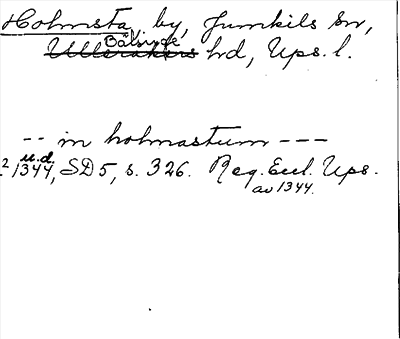 Holmsta by, Jumkils sn,
Bälinge
Ulleråkers hd, Ups. l.
-- in holmastum ---
u.d.
? 1344, SD 5, s. 326. Reg. Eccl. Ups.
av 1344.